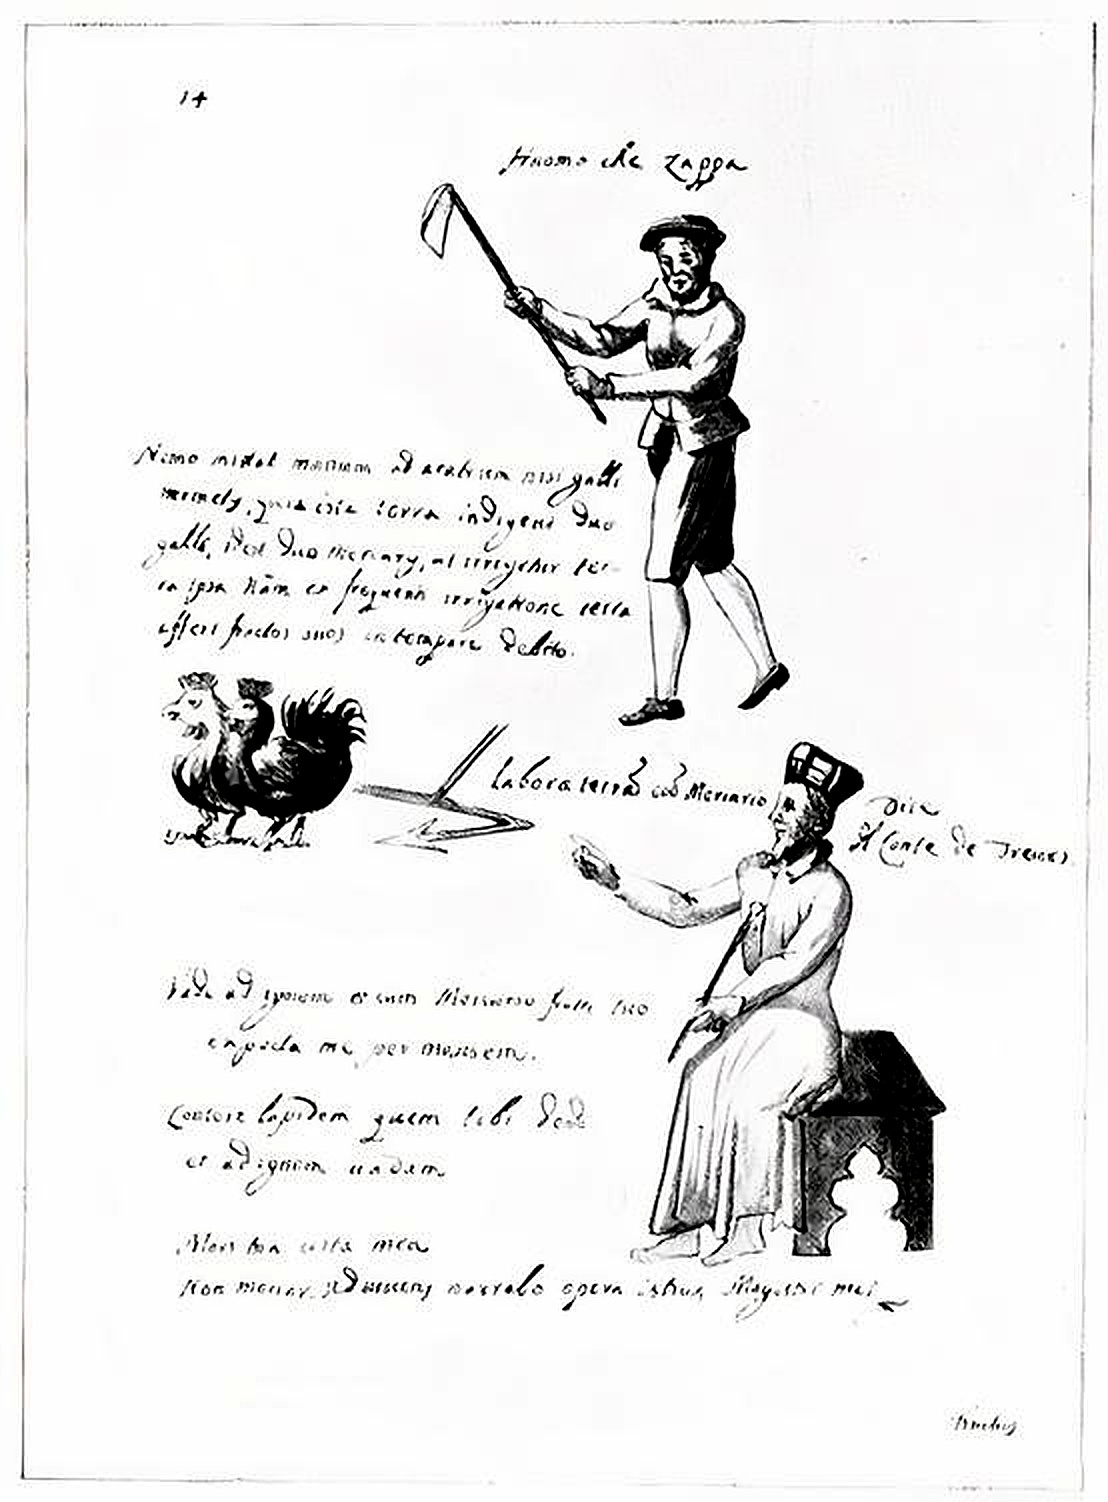 14
Huomo che zappa
Nemo mittat manum ad aratrum nisi galli
quia ista terra indiget duo
galli, duo Mercury, ut irrigetur ter-
ra ipsa Nam ex frequenti irrigatione terra
affert fructos suos in tempore debito.
Labora terrã cõ Mercurio
Dice
il Conte de Treues
Vade ad ignem et cum Mercurio fratri tuo
expecta me per mensem.
Contere lapidem quem tibi dedi
et ad ignem uadam
Mors tua uita mea
Non moriar, sed uiuens narrabo opera istius Magistri mei